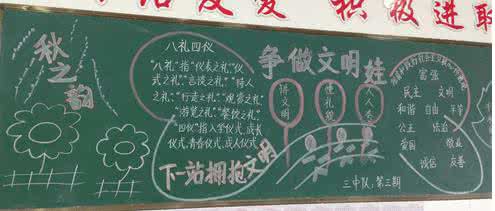 极进取
秋之韵
八礼四仪
"八礼"指"仪表之礼""仪
式之礼""言谈之礼""待人
之礼""行走之礼""观赏之礼"
"游览之礼""餐饮之礼"
"四仪"指入学仪式,成长
仪式,青春仪式,成人仪式
下一站拥抱文明
争做文明娃
讲文明
懂礼貌
人人夸
富强
民主 文明
和谐 自由 平等
公正 法治
爱国 敬业
诚信 友善
三中队,第三期